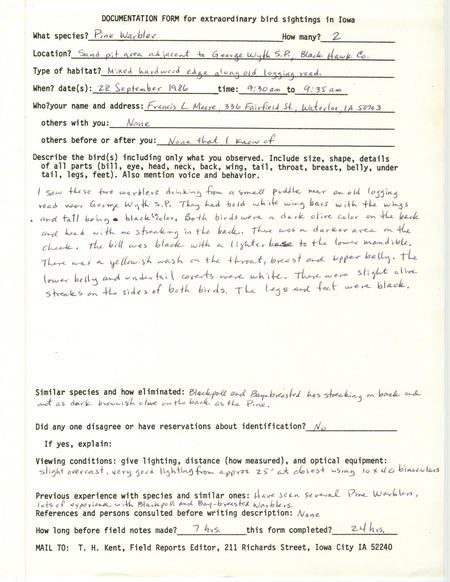 DOCUMENTATION FORM for extraordinary bird sightings in Iowa
What species? Pine Warbler How many? 2
Location? Sand pit area adjacent to George Wyth S.P., Black Hawk Co.
Type of habitat? Mixed hardwood edge along old logging road.
When? date(s): 28 September 1986 time: 9:30 am to 9:35 am
Who? your name and address: Francis L. Moore, 336 Fairfield St., Waterloo, IA 50703
others with you: None
others before or after you: None that I know of
Describe the bird(s) including only what you observed. Include size, shape, details
of all parts (bill, eye, head, neck, back, wing, tail, throat, breast, belly, under
tail, legs, feet). Also mention voice and behavior.
I saw these two warblers drinking from a small puddle near an old logging
road near George Wyth S.P. They had bold white wing bars with the wings
and tail being a black color. Both birds were a dark olive color on the back
and head with no streaking in the back. There was a darker area on the
cheek. The bill was black with a lighter base to the lower mandible.
There was a yellowish wash on the throat, breast and upper belly. The
lower belly and undertail coverts were white. There were slight olive
streaks on the sides of both birds. The legs and feet were black.
Similar species and how eliminated: Blackpoll and Bay-breasted has streaking on back and
not as dark brownish olive on the back as the Pine.
Did any one disagree or have reservations about identification? No
If yes, explain:
Viewing conditions: give lighting, distance (how measured), and optical equipment:
slight overcast, very good lighting from approx 25' at closest using 10x40 binoculars
Previous experience with species and similar ones: Have seen several Pine Warblers,
lots of experience with Blackpoll and Bay-breasted Warblers.
References and persons consulted before writing description: None
How long before field notes made? 7 hrs. this form completed? 24 hrs.
MAIL TO: T. H. Kent, Field Reports Editor, 211 Richards Street, Iowa City IA 52240